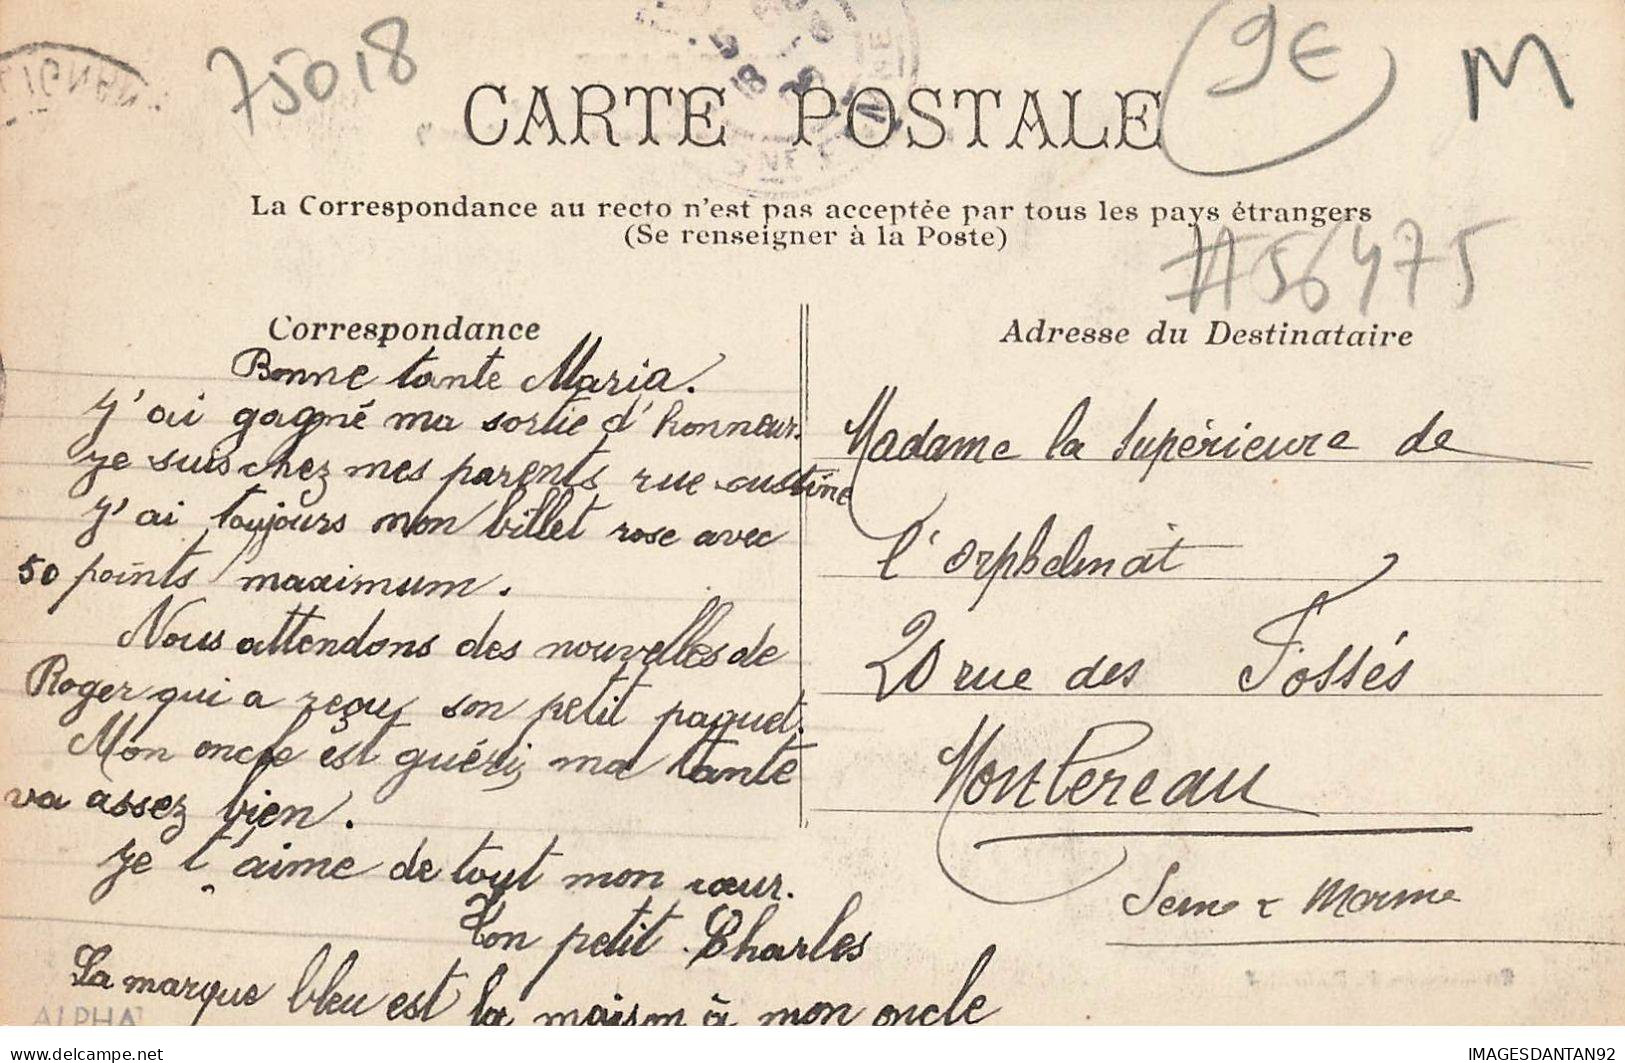 75018
9€
M
CARTE POSTALE
La Correspondance au recto n'est pas acceptée par tous les pays étrangers
(Se renseigner à la Poste)
#56475
Correspondance
Bonne tante Maria.
J'ai gagné ma sortie d'honneur.
je suis chez mes parents rue custine
J'ai toujours mon billet rose avec
50 points maximum.
Nous attendons des nouvelles de
Roger qui a reçu son petit paquet.
Mon oncle est guéri, ma tante
va assez bien.
je t'aime de tout mon cœur.
Ton petit Charles
La marque bleu est la maison à mon oncle
Adresse du Destinataire
Madame la Supérieure de
l'orphelinat
20 rue des Fossés
Montereau
Seine & Marne
ALPHA
www.delcampe.net
IMAGESDANTAN92